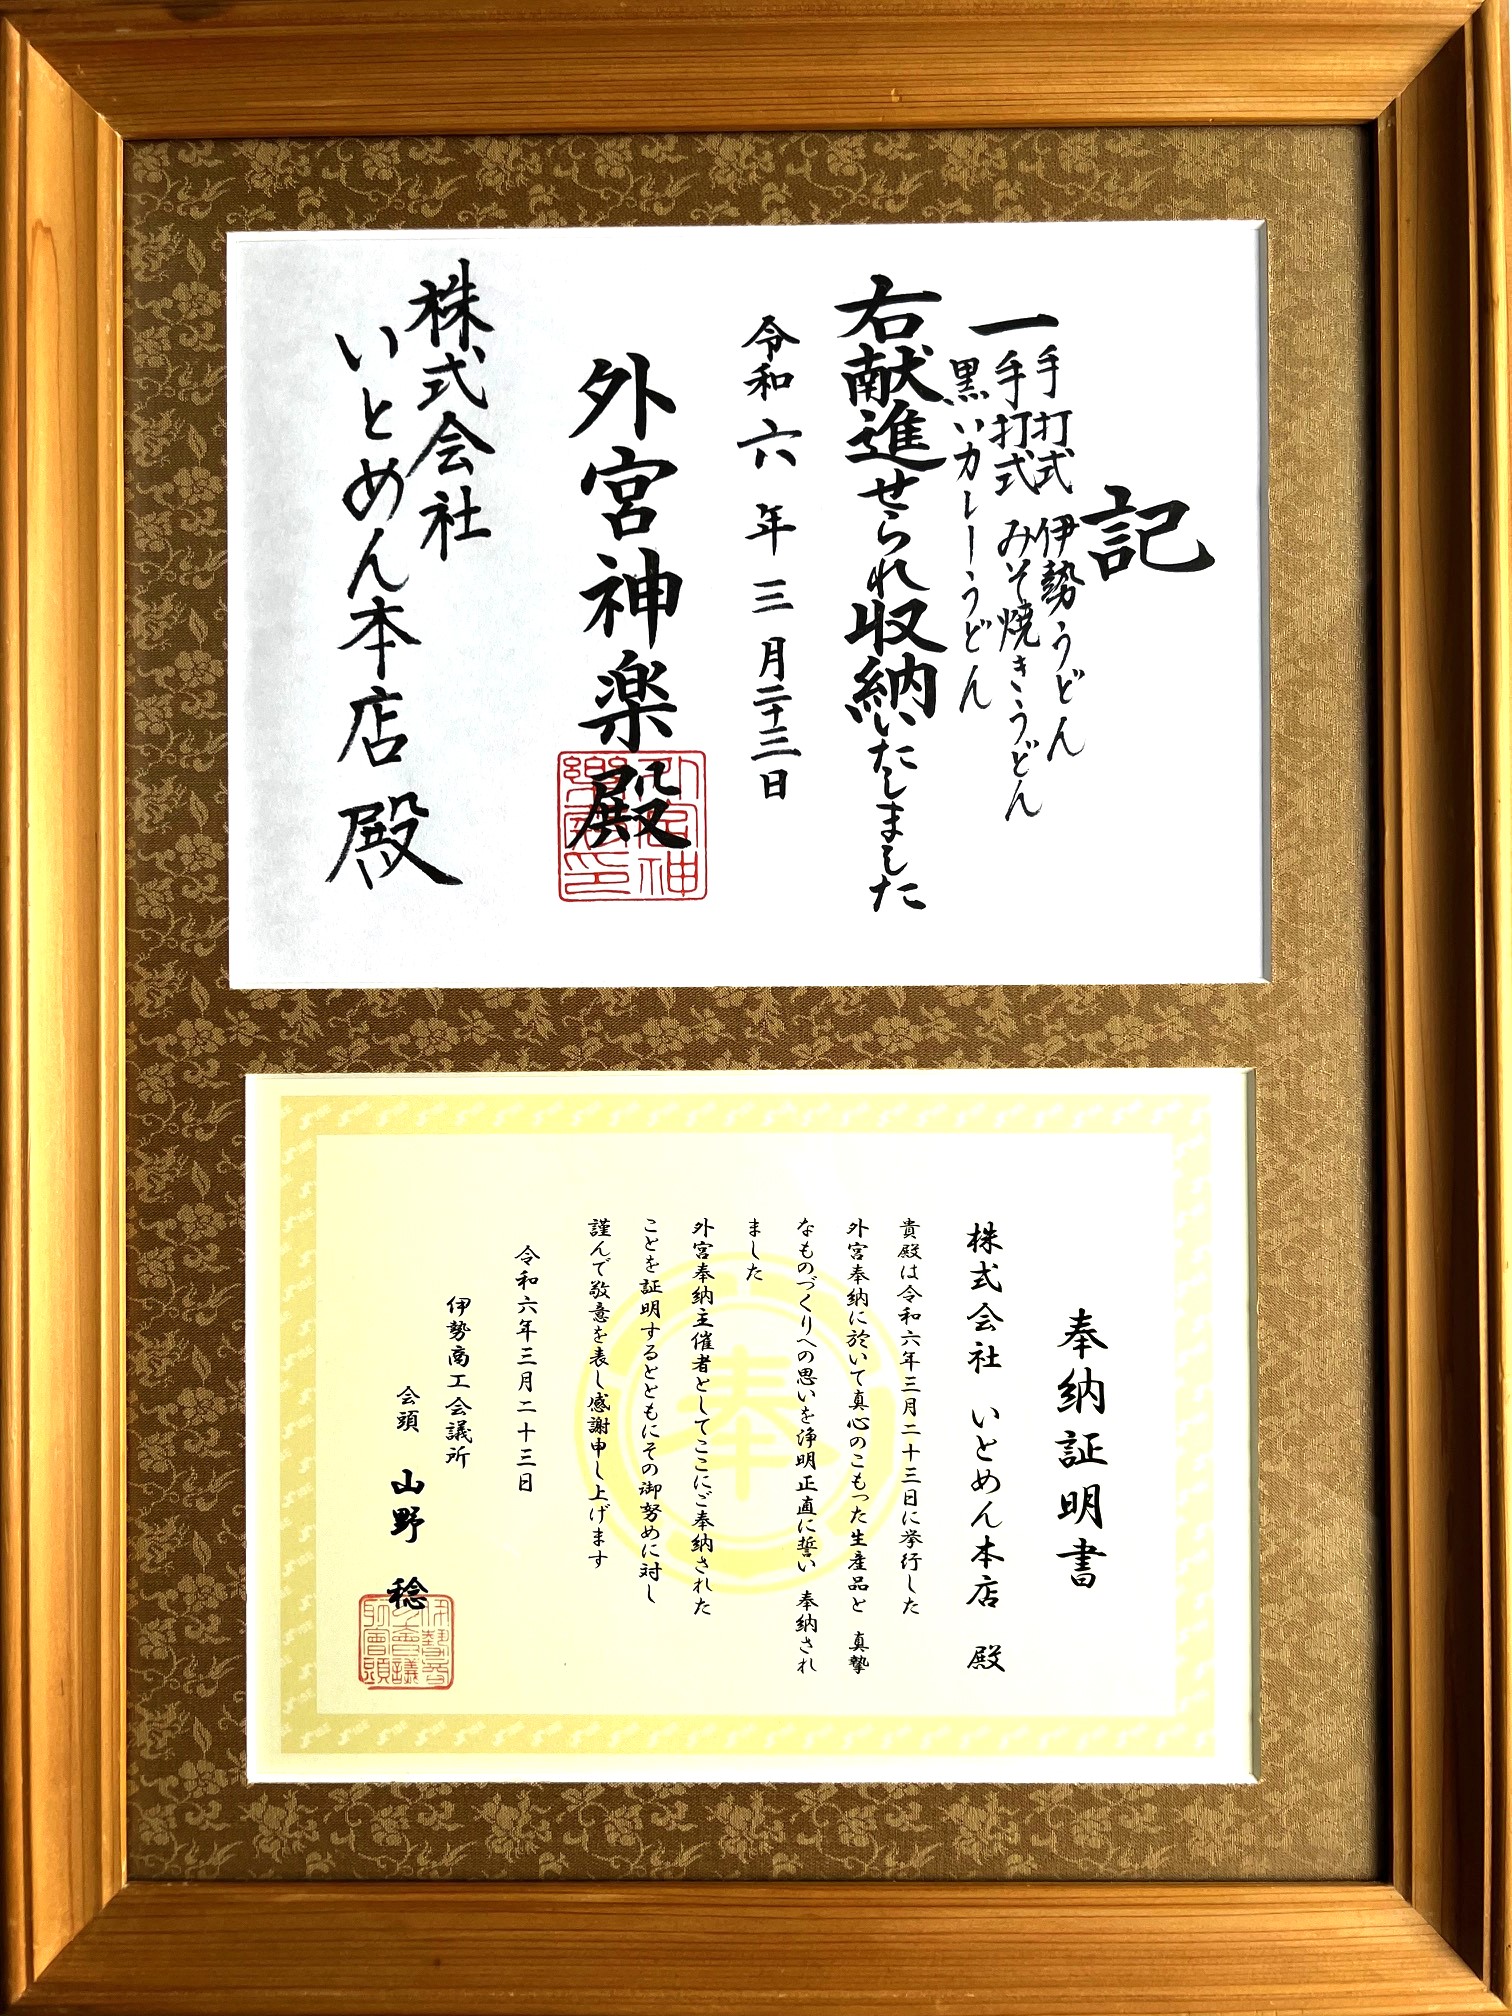 記
一 手打式 伊勢うどん
手打式 みそ焼きうどん
黒いカレーうどん
右献進せられ収納いたしました
令和六年三月二十三日
外宮神楽殿
株式会社
いとめん本店 殿
奉納証明書
株式会社 いとめん本店 殿
貴殿は令和六年三月二十三日に挙行した
外宮奉納に於いて真心のこもった生産品と 真摯
なものづくりへの思いを浄明正直に誓い 奉納され
ました
外宮奉納主催者としてここにご奉納された
ことを証明するとともにその御努めに対し
謹んで敬意を表し感謝申し上げます
令和六年三月二十三日
伊勢商工会議所
会頭 山野 稔
奉